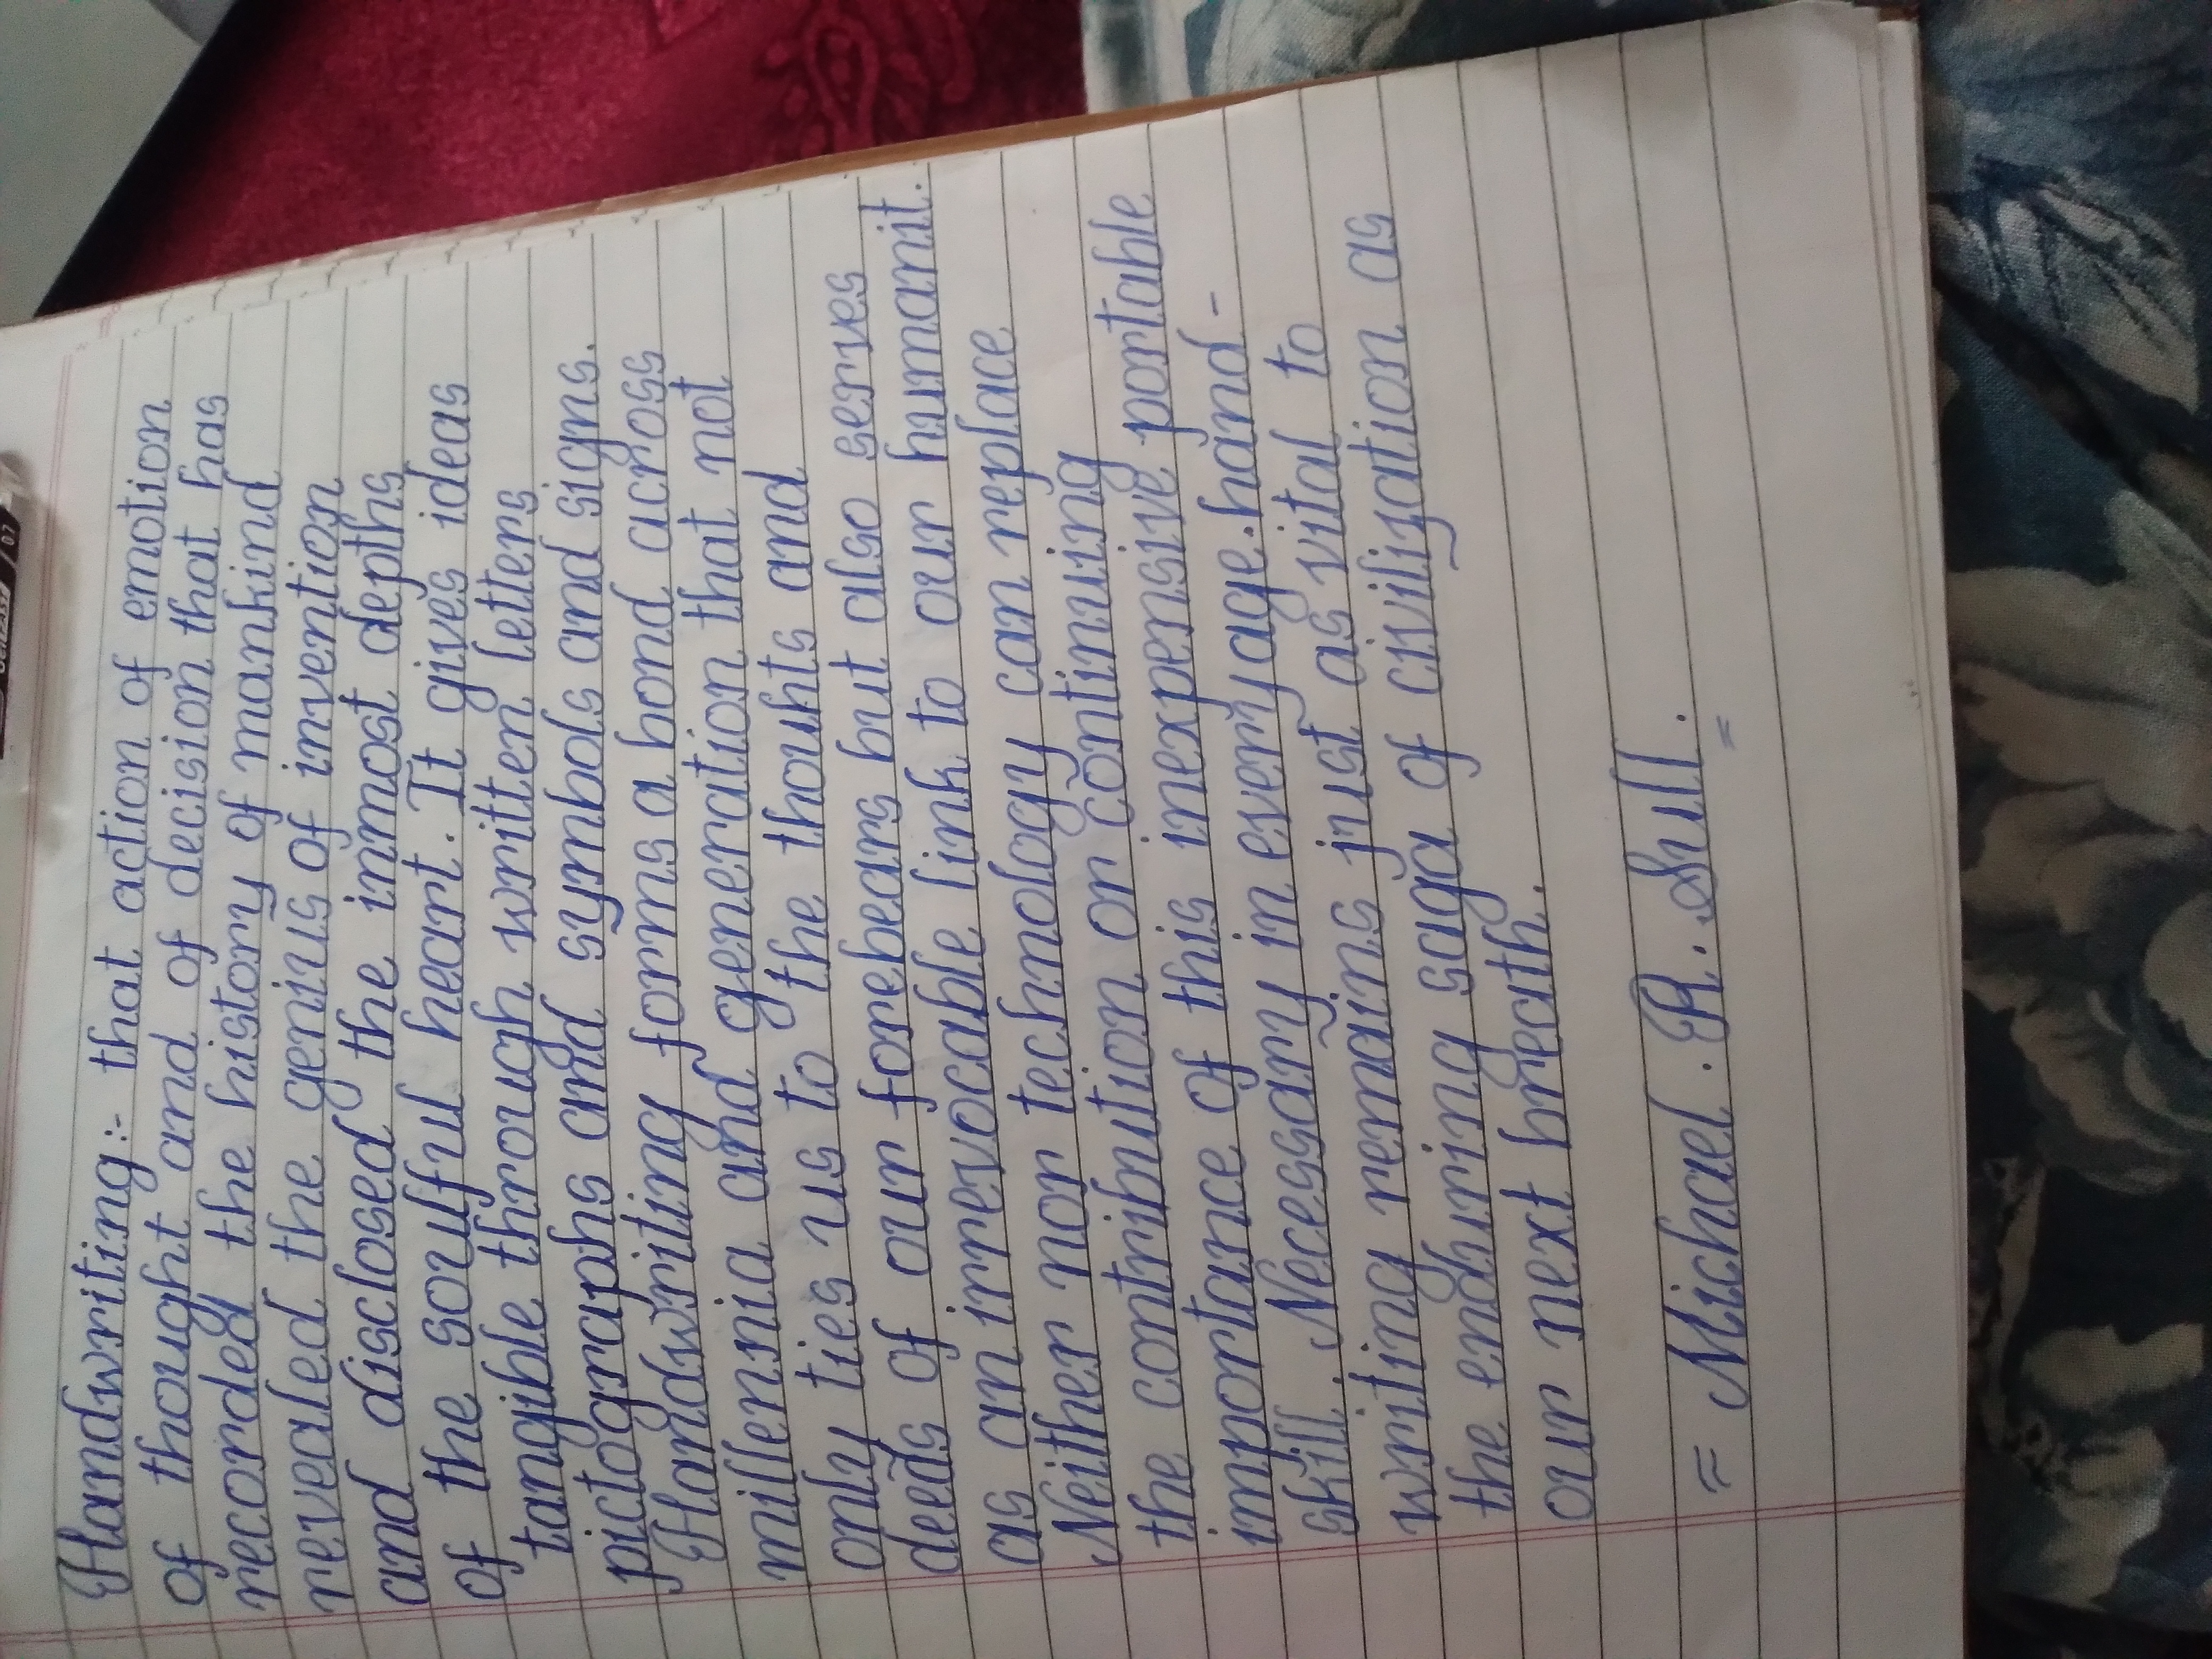 Handwriting:- that action of emotion
of thought and of decision that has
recorded the history of mankind
revealed the genius of invention
and disclosed the inmost depths
of the soulful heart. It gives ideas
tangible through written letters
pictographs and symbols and signs.
Handwriting forms a bond across
millennia and generation that not
only ties us to the thouhts and
deeds of our forebears but also serves
as an irrevocable link to our humanit.
Neither nor technology can replace
the contribution or continuing
importance of this inexpensive portable
skill. Necessary in every age.hand-
writing remains just as vital to
the enduring saga of civilization as
our next breath.
= Michael. R. Sull.
=
07